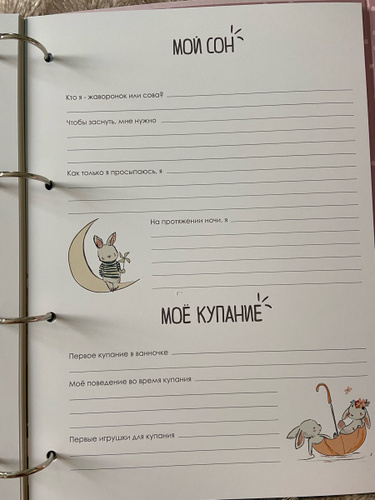 МОЙ СОН
Кто я - жаворонок или сова?
Чтобы заснуть, мне нужно
Как только я просыпаюсь, я
На протяжении ночи, я
МОЁ КУПАНИЕ
Первое купание в ванночке
Моё поведение во время купания
Первые игрушки для купания